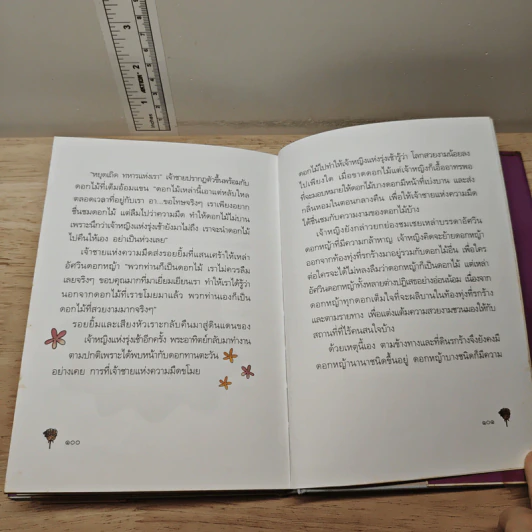 "หยุดเถิด ทหารแห่งเรา" เจ้าชายปรากฏตัวขึ้นพร้อมกับ
ดอกไม้ที่เต็มอ้อมแขน "ดอกไม้เหล่านี้เอาแต่หลับใหล
ตลอดเวลาที่อยู่กับเรา อา...ขอโทษจริงๆ เราเพียงอยาก
ชื่นชมดอกไม้ แต่ลืมไปว่าความมืด ทำให้ดอกไม้ไม่บาน
เพราะนึกว่าเจ้าหญิงแห่งรุ่งเช้ายังมาไม่ถึง เราจะนำดอกไม้
ไปคืนให้เอง อย่าเป็นห่วงเลย"
เจ้าชายแห่งความมืดส่งรอยยิ้มที่แสนเศร้าให้เหล่า
อัศวินดอกหญ้า "พวกท่านก็เป็นดอกไม้ เราไม่ควรลืม
เลยจริงๆ ขอบคุณมากที่มาเยี่ยมเยียนเรา ทำให้เราได้รู้ว่า
นอกจากดอกไม้ที่เราขโมยมาแล้ว พวกท่านเองก็เป็น
ดอกไม้ที่สวยงามมากจริงๆ"
รอยยิ้มและเสียงหัวเราะกลับคืนมาสู่ดินแดนของ
เจ้าหญิงแห่งรุ่งเช้าอีกครั้ง พระอาทิตย์กลับมาทำงาน
ตามปกติเพราะได้พบหน้ากับดอกทานตะวัน
อย่างเคย การที่เจ้าชายแห่งความมืดขโมย
๑๐๐
ดอกไม้ไปทำให้เจ้าหญิงแห่งรุ่งเช้ารู้ว่า โลกสวยงามน้อยลง
ไปเพียงใด เมื่อขาดดอกไม้แต่เจ้าหญิงก็เอื้ออาทรพอ
ที่จะมอบหมายให้ดอกไม้บางดอกมีหน้าที่เบ่งบาน และส่ง
กลิ่นหอมในตอนกลางคืน เพื่อให้เจ้าชายแห่งความมืด
ได้ชื่นชมกับความงามของดอกไม้บ้าง
เจ้าหญิงยังกล่าวยกย่องชมเชยเหล่าบรรดาอัศวิน
ดอกหญ้าที่มีความกล้าหาญ เจ้าหญิงคิดจะย้ายดอกหญ้า
ออกจากท้องทุ่งที่รกร้างมาอยู่รวมกับดอกไม้อื่น เพื่อใคร
ต่อใครจะได้ไม่หลงลืมว่าดอกหญ้าก็เป็นดอกไม้ แต่เหล่า
อัศวินดอกหญ้าทั้งหลายต่างปฏิเสธอย่างอ่อนน้อม เนื่องจาก
ดอกหญ้าทุกดอกเต็มใจที่จะผลิบานในท้องทุ่งที่รกร้าง
และตามรายทาง เพื่อแต่งแต้มความสวยงามชวนมองให้กับ
สถานที่ที่ไร้คนสนใจบ้าง
ด้วยเหตุนี้เอง ตามข้างทางและที่ดินรกร้างจึงยังคงมี
ดอกหญ้านานาชนิดขึ้นอยู่ ดอกหญ้าบางชนิดก็มีความ
๑๐๑